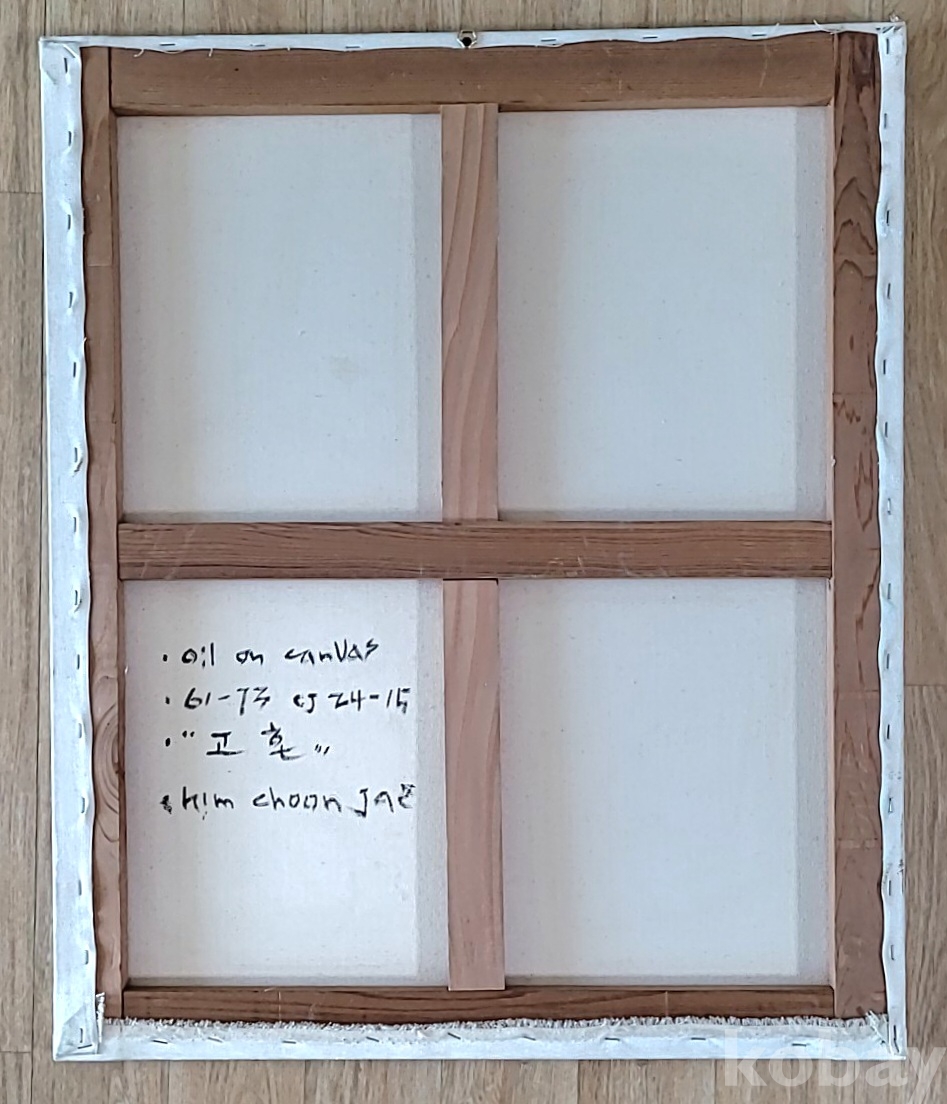 · oil on canvas
· 61-73 cj 24-15
· " 고 혼 "
· Kim choon Jae
kobay